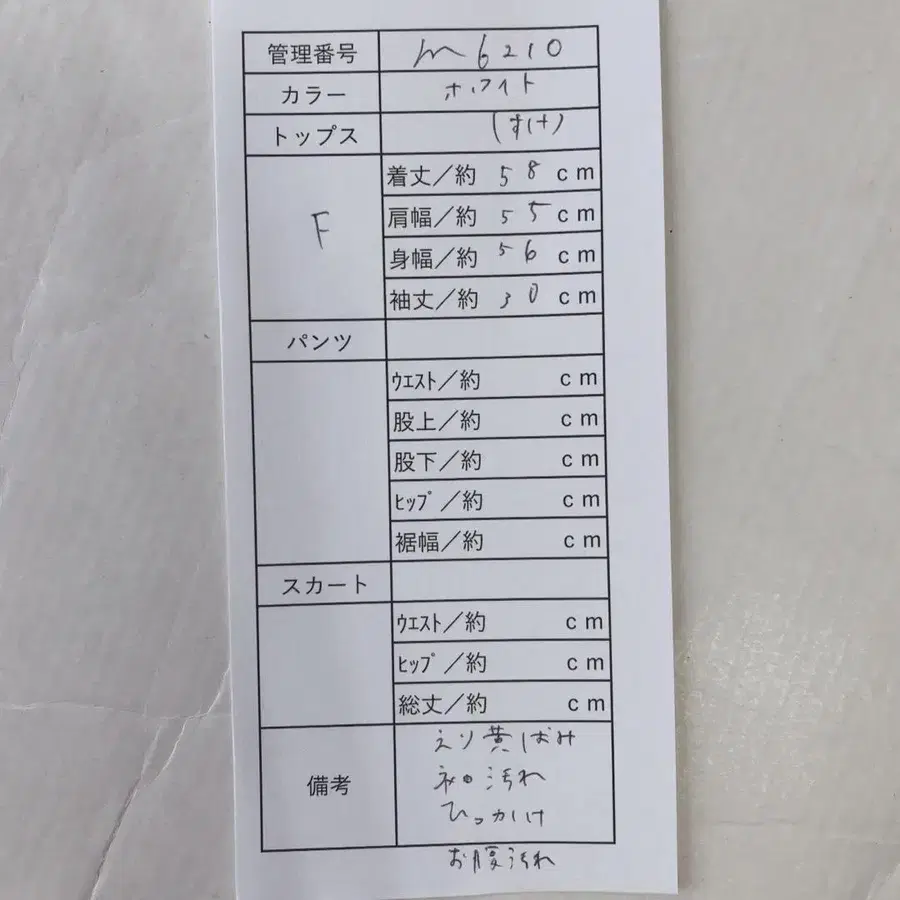 管理番号 m6210
カラー ホワイト
トップス (すけ)
F
着丈／約 58 cm
肩幅／約 55 cm
身幅／約 56 cm
袖丈／約 30 cm
パンツ
ウエスト／約 cm
股上／約 cm
股下／約 cm
ヒップ／約 cm
裾幅／約 cm
スカート
ウエスト／約 cm
ヒップ／約 cm
総丈／約 cm
備考
えり黄ばみ
袖口汚れ
ひっかけ
お腹汚れ